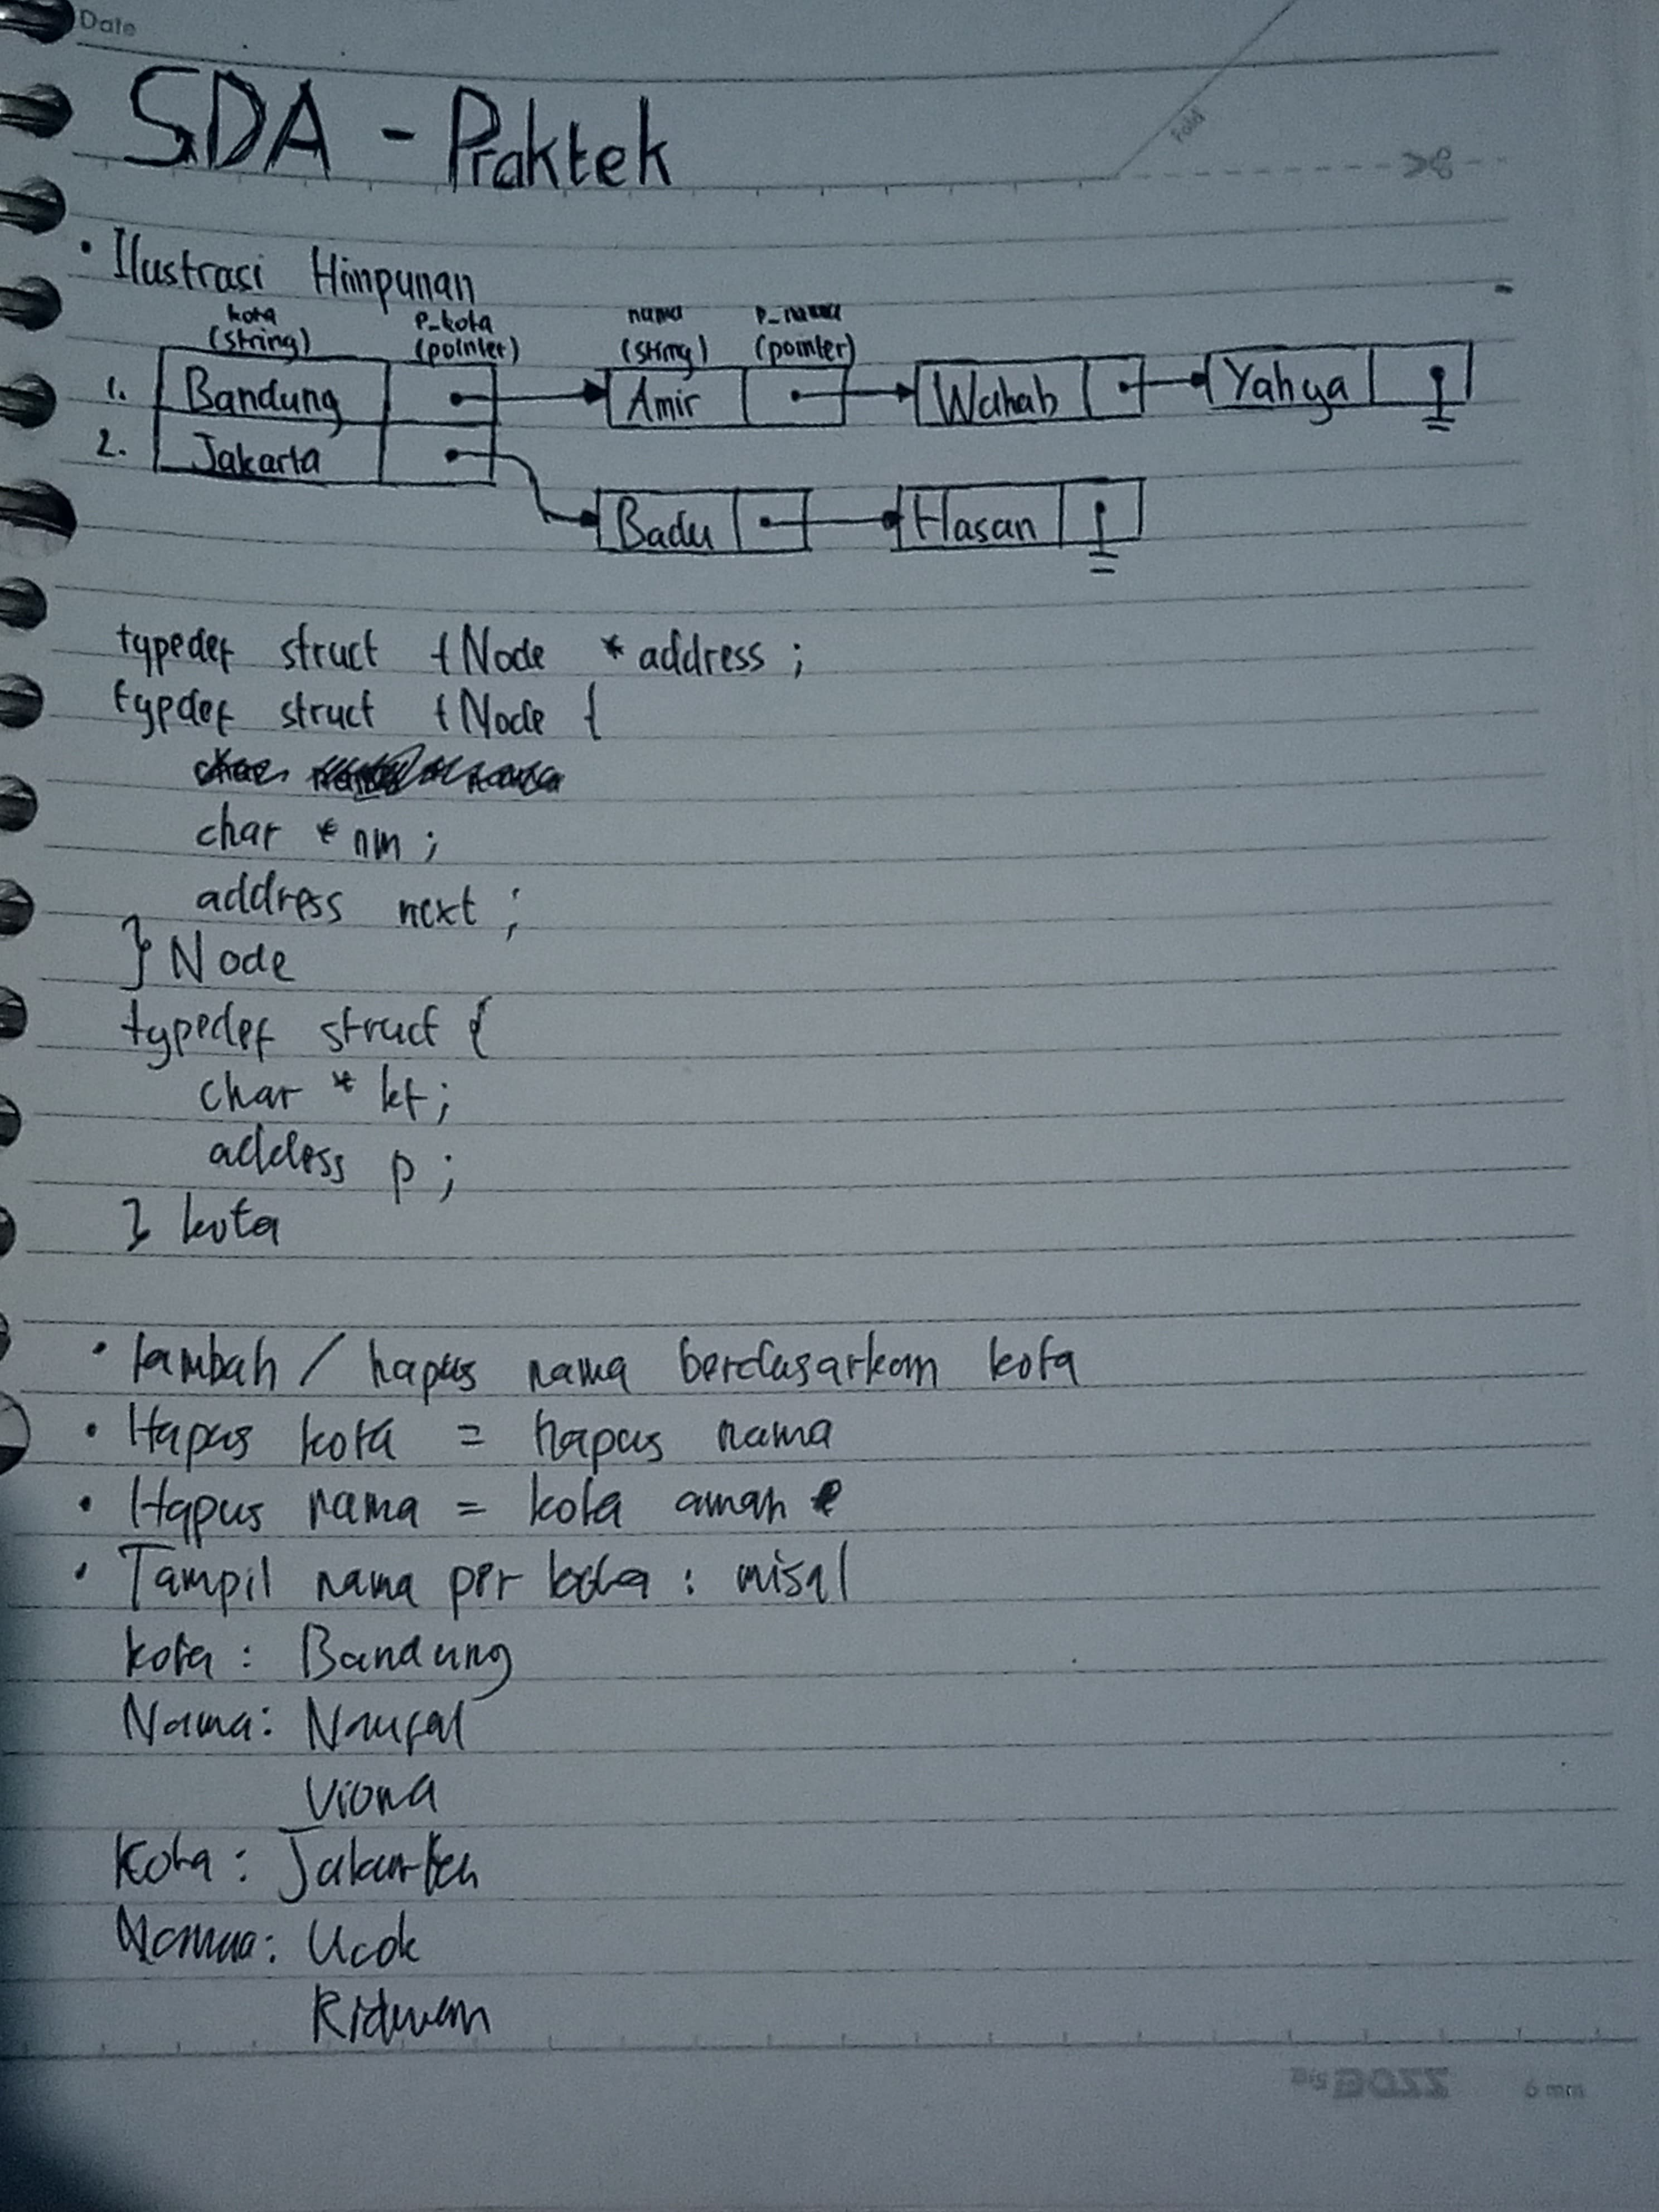 Date
SDA - Praktek
Fold
• Ilustrasi Himpunan
kota p_kota nama p_nama
(string) (pointer) (string) (pointer)
1. Bandung Amir Wahab Yahya
2. Jakarta
Badu Hasan
typedef struct tNode * address ;
typdef struct tNode {
char * nm ;
address next ;
} Node
typedef struct {
char * kt ;
address p ;
} kota
• tambah / hapus nama berdasarkan kota
• Hapus kota = hapus nama
• Hapus nama = kota aman
• Tampil nama per kota : misal
kota : Bandung
Nama : Naufal
Viona
Kota : Jakarta
Nama : Ucok
Ridwan
Big BOSS 6 mm